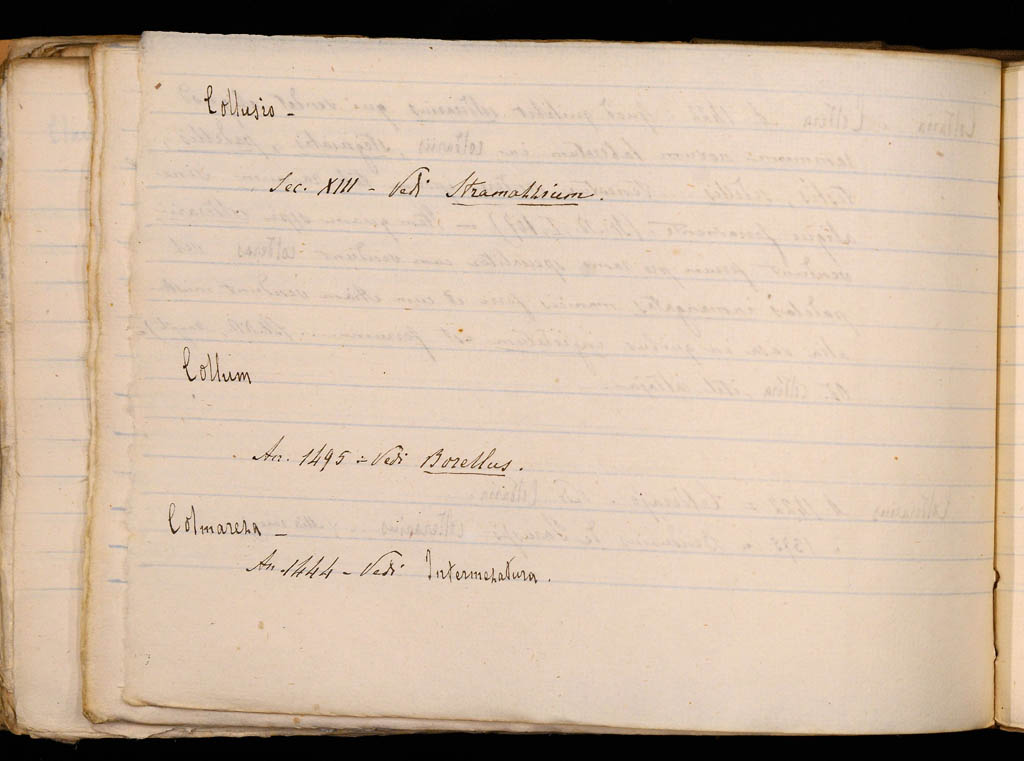 Collusio -
Sec. XIII - Vedi Stramazzium.
Collum
An. 1495 = Vedi Borellus.
Colmareza -
An. 1444 - Vedi Intermezatura.